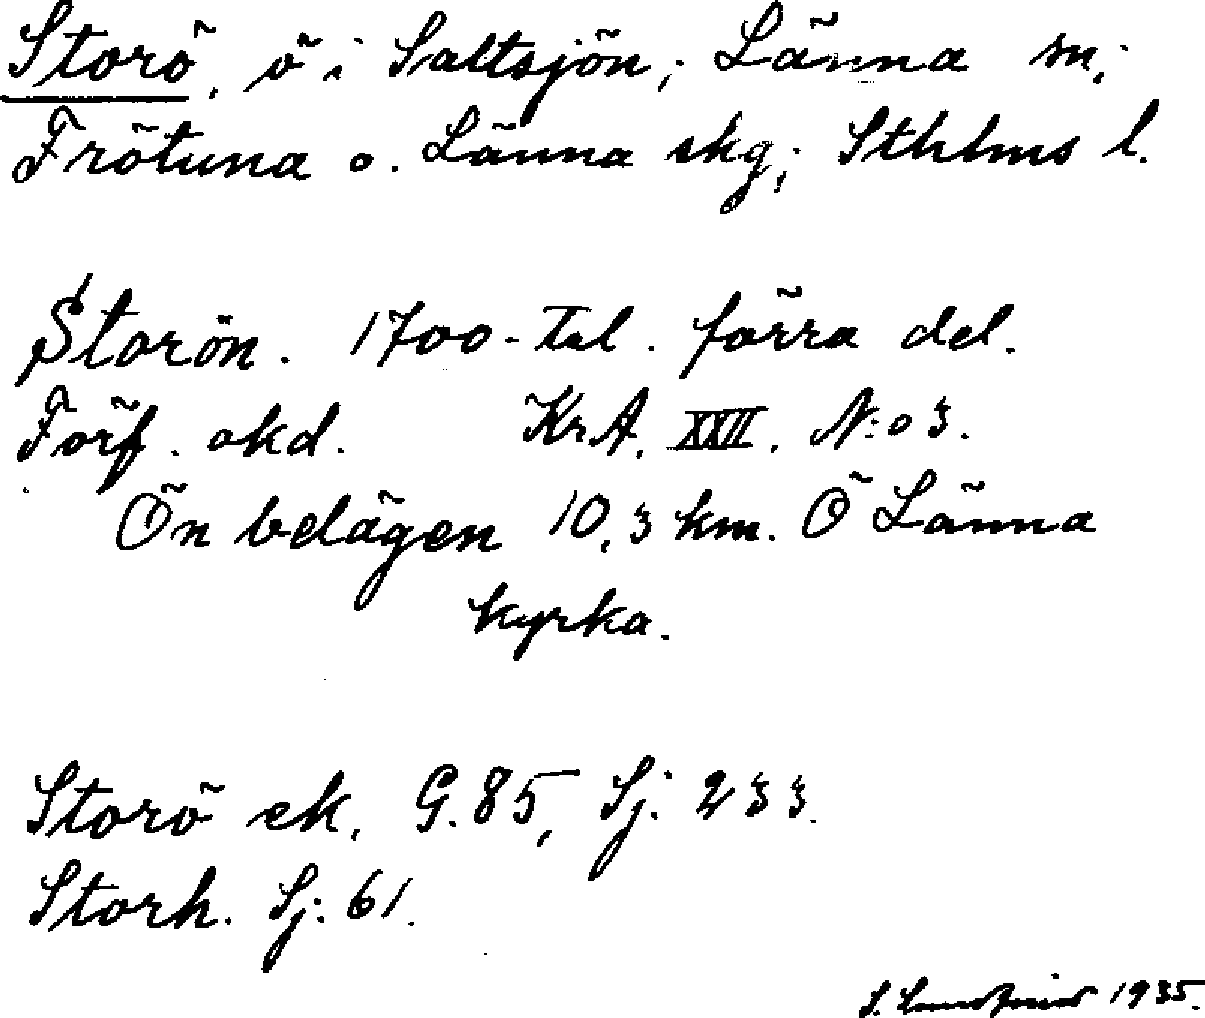 Storö, ö i Saltsjön; Länna sn;
Frötuna o. Länna skg; Sthlms l.
Storön. 1700-tal. förra del.
Förf. okd. KrA. XXII. N:o 3.
Ön belägen 10,3 km. Ö Länna
kyrka.
Storö ek. G. 85, Sj. 233.
Storh. Sj. 61.
S. 1935.